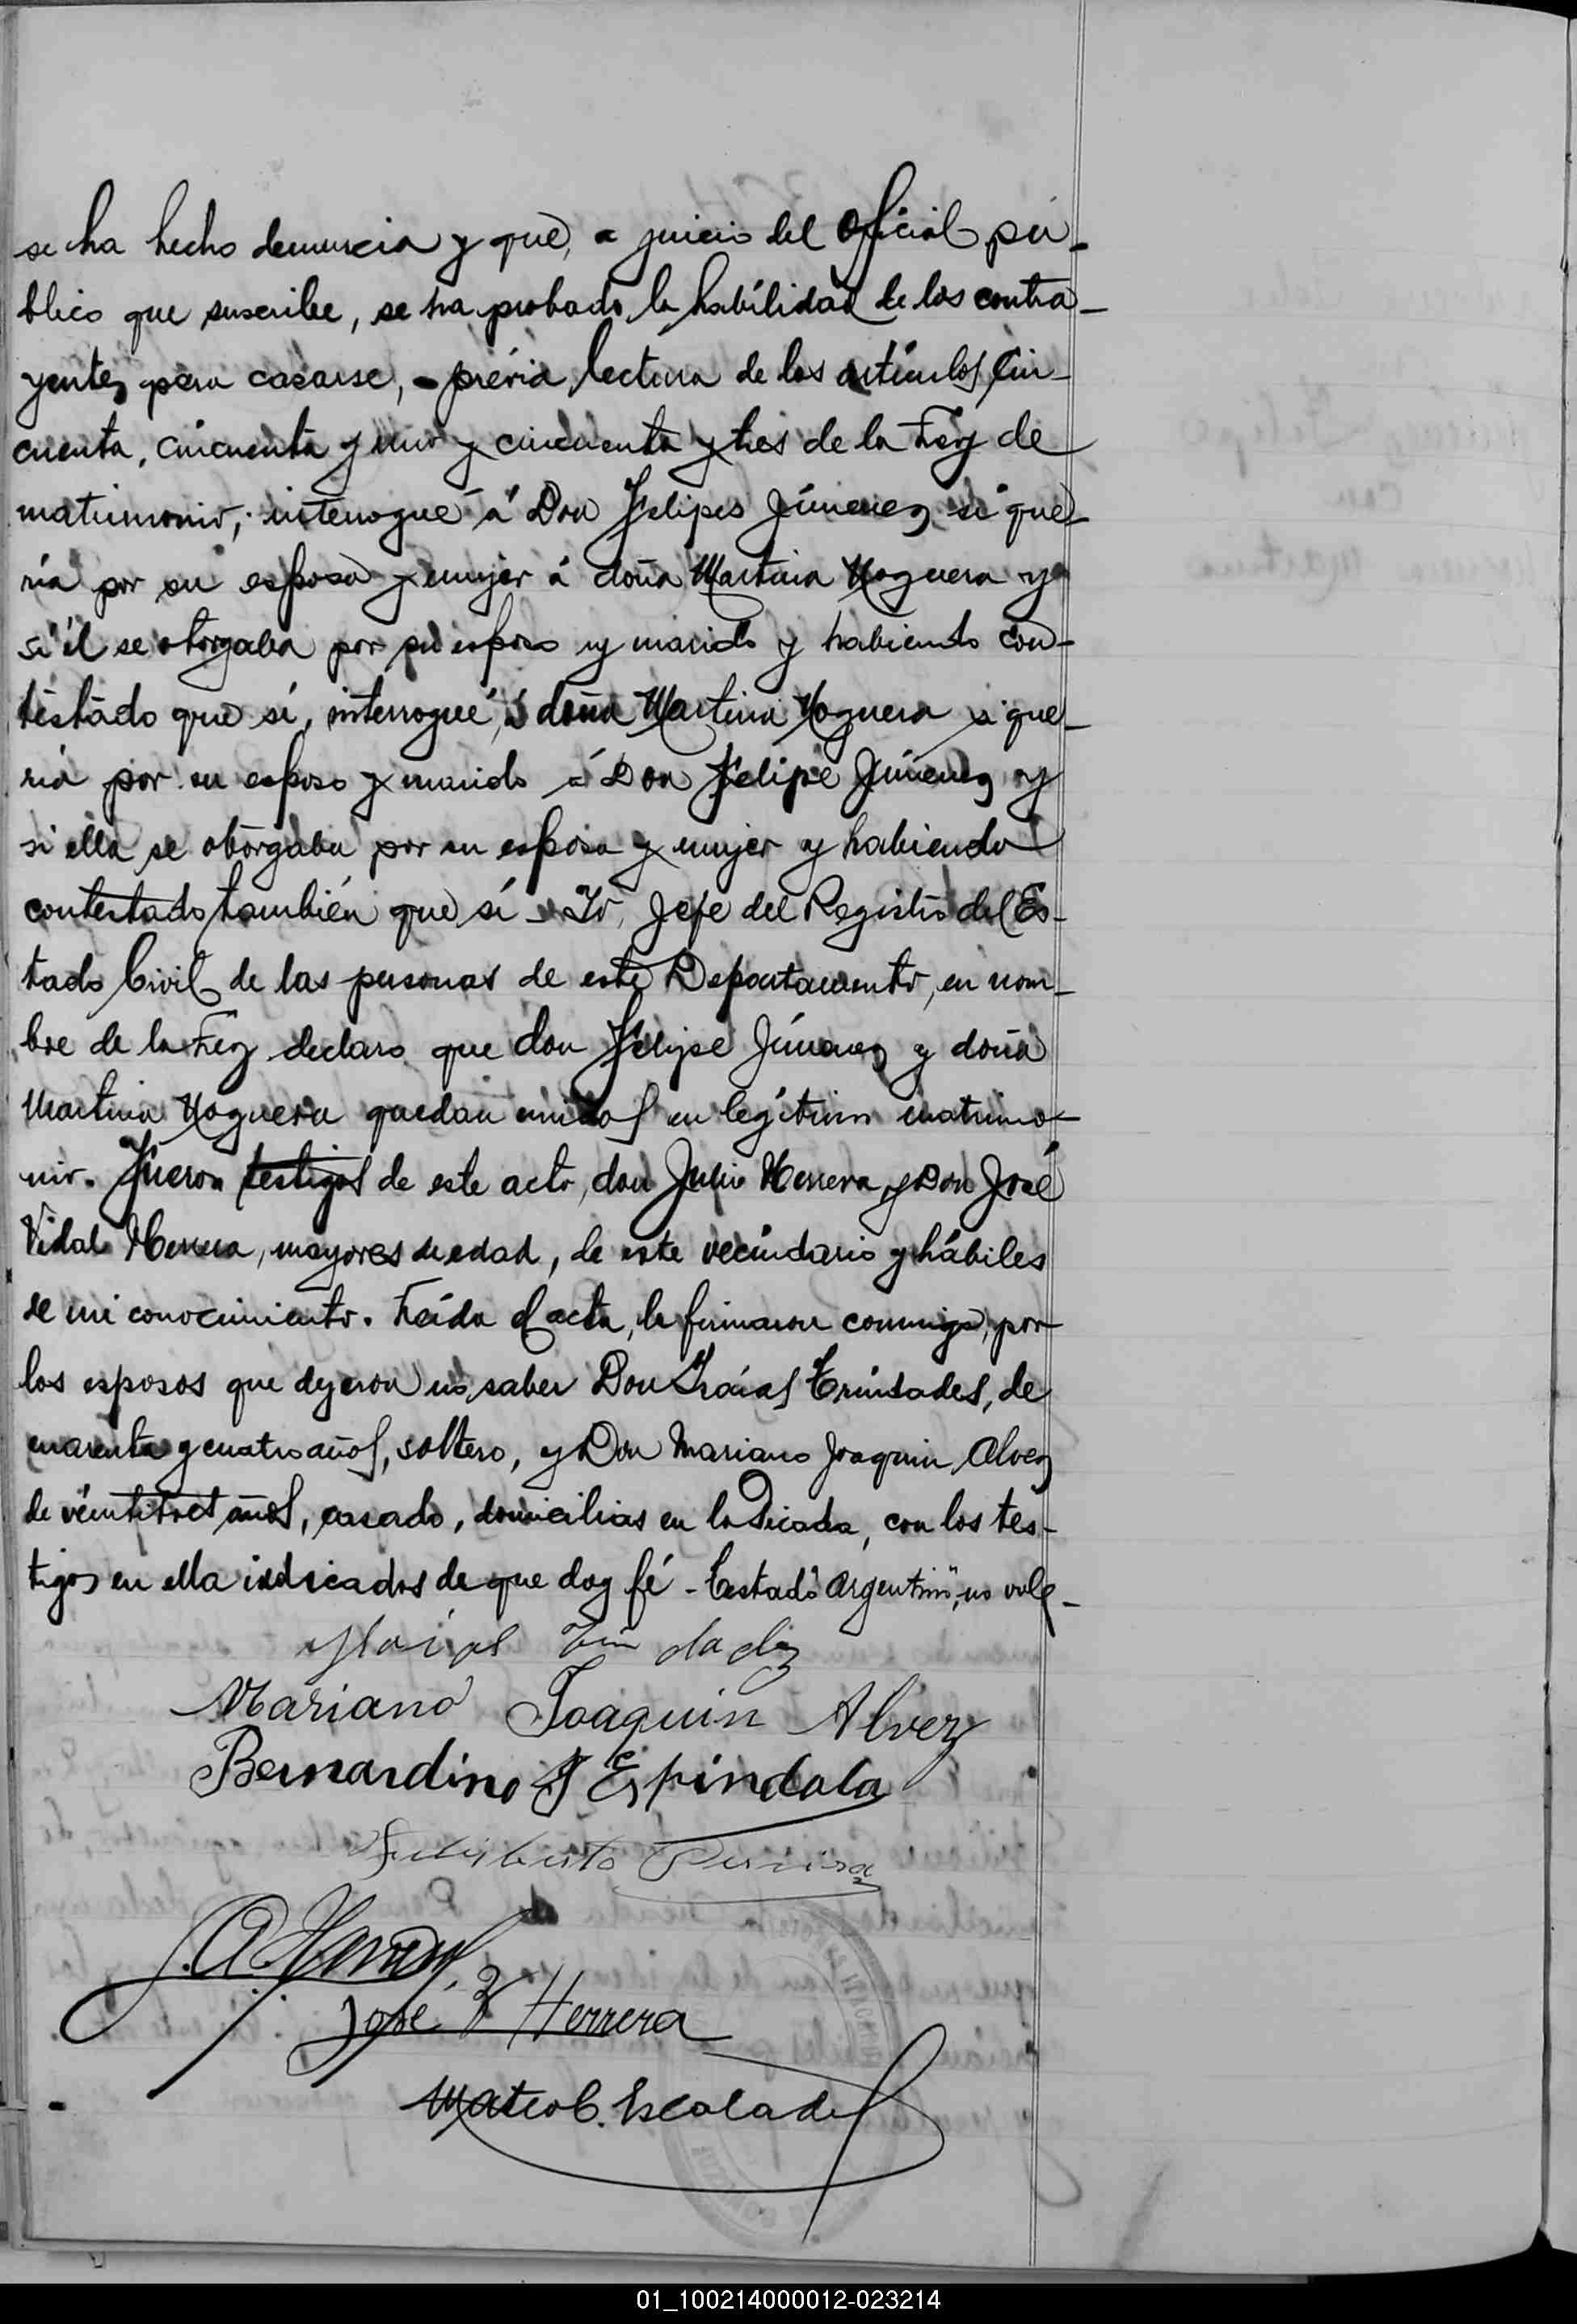 se ha hecho denuncia y que, a juicio del Oficial pú-
blico que suscribe, se ha probado la habilidad de los contra-
yentes para casarse, - prévia lectura de los artículos cin-
cuenta, cincuenta y uno y cincuenta y tres de la Ley de
matrimonio; interrogué á Don Felipe Jimenez si que-
ría por su esposa y mujer á doña Martina Noguera y
si él se otorgaba por su esposo y marido y habiendo con-
testado que sí, interrogué á doña Martina Noguera si que-
ría por su esposo y marido á Don Felipe Jimenez y
si ella se otorgaba por su esposa y mujer y habiendo
contestado también que sí - Yo, Jefe del Registro del Es-
tado Civil de las personas de este Departamento, en nom-
bre de la Ley declaro que don Felipe Jimenez y doña
Martina Noguera quedan unidos en legítimo matrimo-
nio. Fueron testigos de este acto, don Julio Herrera y Don José
Vidal Herrera, mayores de edad, de este vecindario y hábiles
de mi conocimiento. Leída el acta, la firmaron conmigo, por
los esposos que dijeron no saber Don Isaías Trindades, de
cuarenta y cuatro años, soltero, y Don Mariano Joaquin Alvez
de veintitres años, casado, domicilias en la Picada, con los tes-
tigos en ella indicados de que doy fé - Testado "Argentino", no vale -
Mariano Joaquin Alvez
Bernardino Espindola
Herrera
José V Herrera
Mateo C. Escalada
01_100214000012-023214